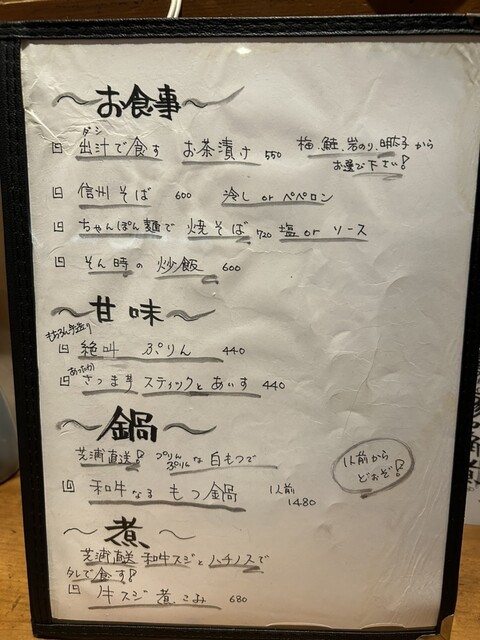 〜お食事〜
ダシ
出汁で食す お茶漬け 550 梅、鮭、岩のり、明太子から
お選び下さい!
信州そば 600 冷し or ペペロン
ちゃんぽん麺で 焼そば 720 塩 or ソース
そん時の 炒飯 600
〜甘味〜
もちろん手造り
絶叫 ぷりん 440
あったか
さつま芋 スティックとあいす 440
〜鍋〜
芝浦直送! ぷりんぷりんな 白もつで
1人前から
どおぞ!
和牛なる もつ鍋 1人前
1480
〜煮〜
芝浦直送 和牛スジとハチノスで
タレで食す!
牛スジ煮こみ 680